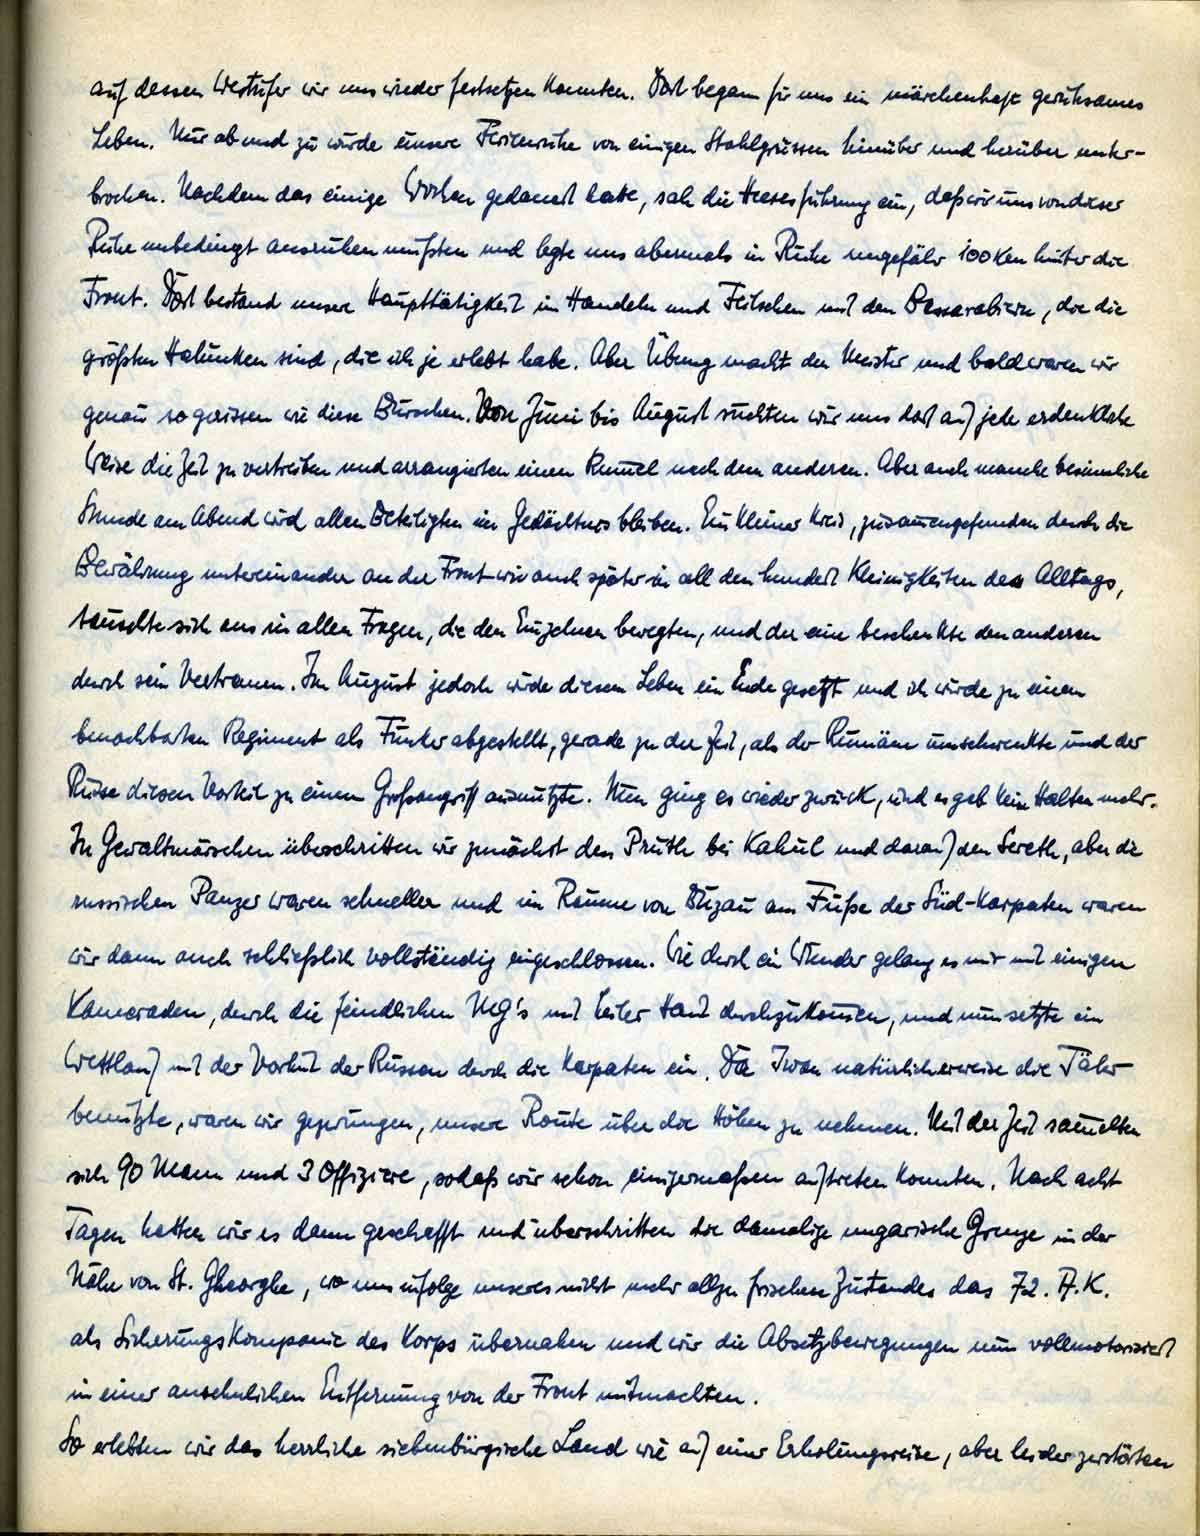 auf dessen Westufer wir uns wieder festsetzen konnten. Dort begann für uns ein märchenhaft geruhsames
Leben. Nur ab und zu wurde unsere Ferienruhe von einigen Stahlgrüssen hinüber und herüber unter-
brochen. Nachdem das einige Wochen gedauert hatte, sah die Heeresführung ein, daß wir uns von dieser
Ruhe unbedingt ausruhen mußten und legte uns abermals in Ruhe ungefähr 100 Km hinter die
Front. Dort bestand unsere Haupttätigkeit im Handeln und Feilschen mit den Bessarabiern, die die
größten Halunken sind, die ich je erlebt habe. Aber Übung macht den Meister und bald waren wir
genau so gerissen wie diese Burschen. Von Juni bis August suchten wir uns dort auf jede erdenkliche
Weise die Zeit zu vertreiben und arrangierten einen Rummel nach dem anderen. Aber auch manche besinnliche
Stunde am Abend wird allen Beteiligten im Gedächtnis bleiben. Ein kleiner Kreis, zusammengefunden durch die
Bewährung untereinander an der Front wie auch später in all den hundert Kleinigkeiten des Alltags,
tauschte sich aus in allen Fragen, die den Einzelnen bewegten, und der eine beschenkte den anderen
durch sein Vertrauen. Im August jedoch wurde diesem Leben ein Ende gesetzt und ich wurde zu einem
benachbarten Regiment als Funker abgestellt, gerade zu der Zeit, als der Rumäne umschwenkte und der
Russe diesen Vorteil zu einem Großangriff ausnützte. Nun ging es wieder zurück, und es gab kein Halten mehr.
In Gewaltmärschen überschritten wir zunächst den Pruth bei Kahul und darauf den Sereth, aber die
russischen Panzer waren schneller und im Raume von Buzau am Fuße der Süd-Karpaten waren
wir dann auch schließlich vollständig eingeschlossen. Wie durch ein Wunder gelang es mir mit einigen
Kameraden, durch die feindlichen MG's mit heiler Haut durchzukommen, und nun setzte ein
Wettlauf mit der Vorhut der Russen durch die Karpaten ein. Da Iwan natürlicherweise die Täler
benutzte, waren wir gezwungen, unsere Route über die Höhen zu nehmen. Mit der Zeit sammelten
sich 90 Mann und 3 Offiziere, sodaß wir schon einigermaßen auftreten konnten. Nach acht
Tagen hatten wir es dann geschafft und überschritten die damalige ungarische Grenze in der
Nähe von St. Gheorghe, wo uns infolge unseres nicht mehr allzu frischen Zustandes das 72. A.K.
als Sicherungskompanie des Korps übernahm und wir die Absetzbewegungen nun vollmotorisiert
in einer ansehnlichen Entfernung von der Front mitmachten.
So erlebten wir das herrliche siebenbürgische Land wie auf einer Erholungsreise, aber leider zerstörten